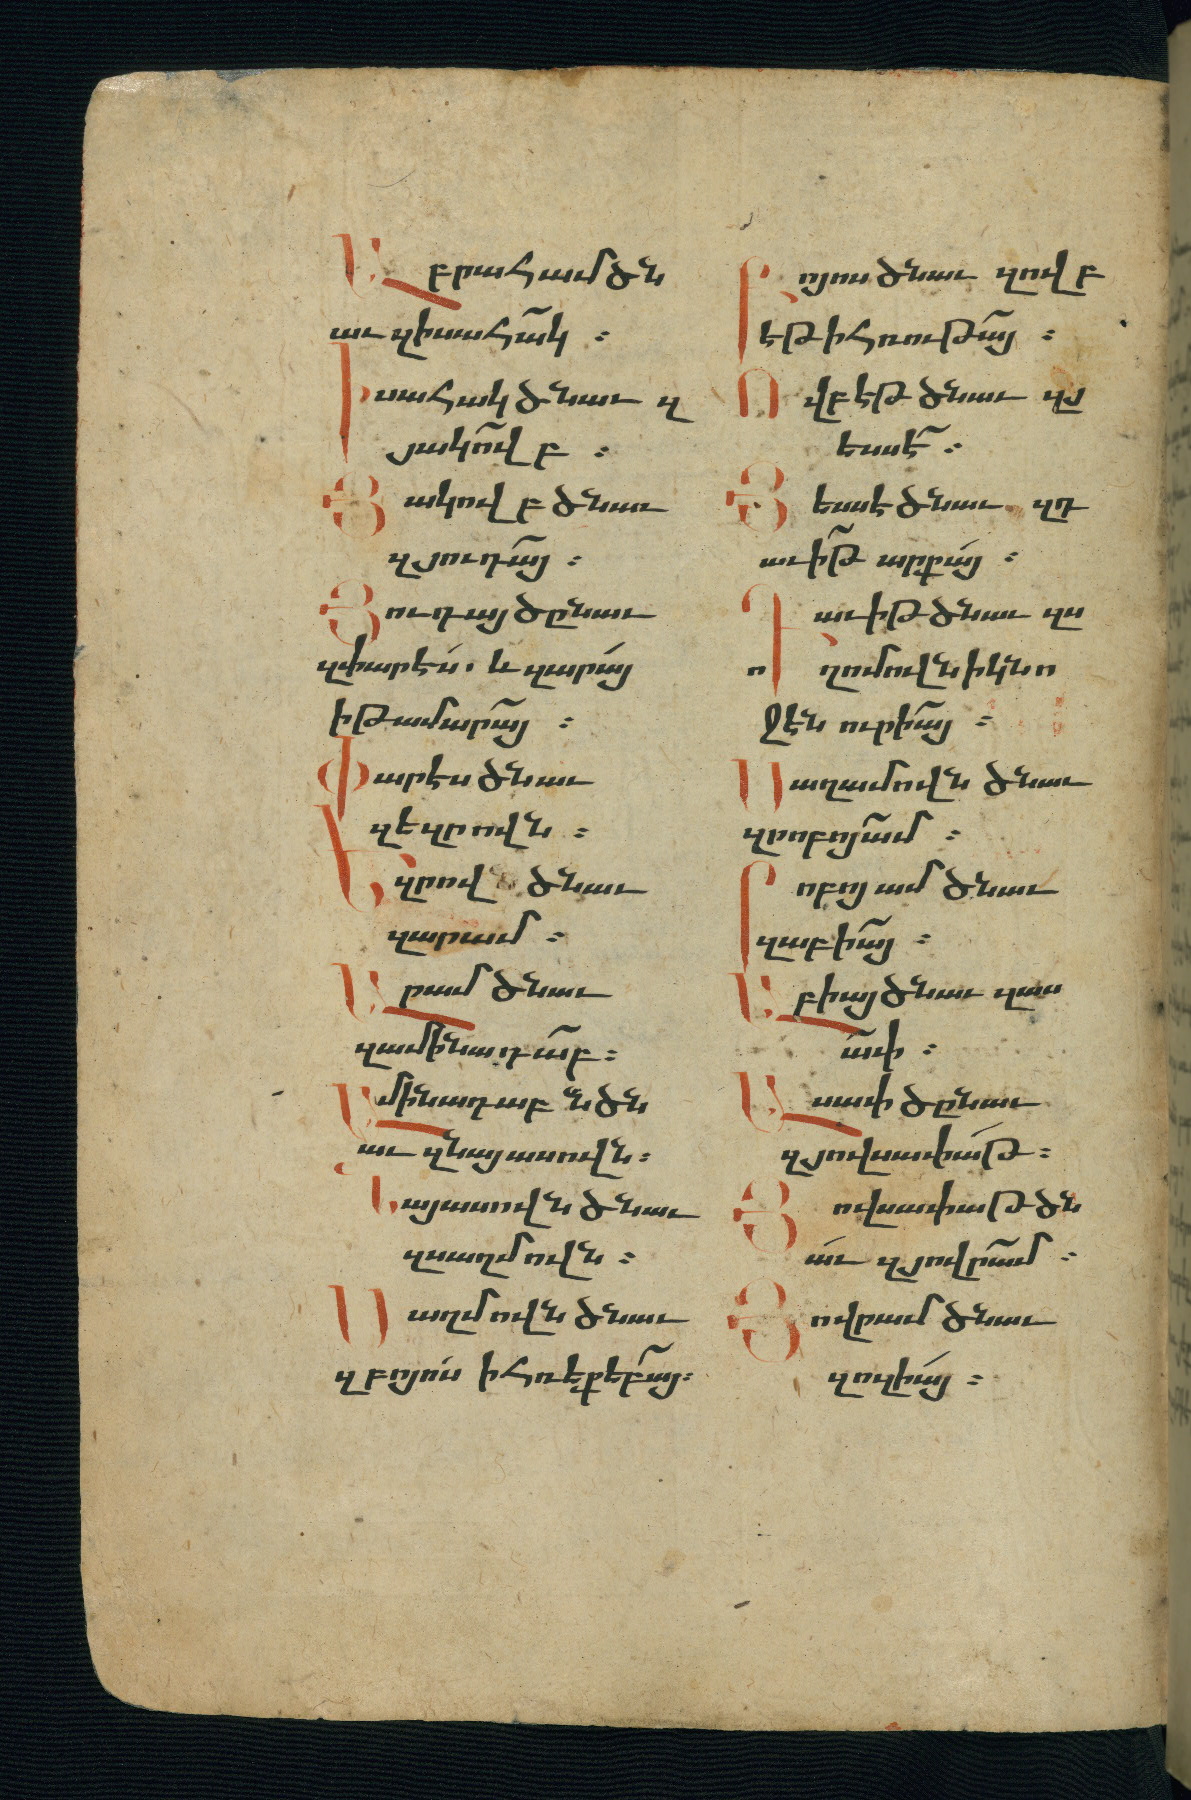 Աբրահամ ծն
աւ զիսահակ ։
Իսահակ ծնաւ զ
յակովբ ։
Յակովբ ծնաւ
զյուդայ ։
Յուդայ ծընաւ
զփարէս. և զարայ
ի թամարայ ։
Փարէս ծնաւ
զեզրովն ։
Եզրով ծնաւ
զարամ ։
Արամ ծնաւ
զամինադաբ ։
Ամինադաբն ծն
աւ զնայասովն ։
Նայասովն ծնաւ
զսաղմովն ։
Սաղմովն ծնաւ
զբոյոս ի հռեքեբայ ։
Բոյոս ծնաւ զովբ
էթ ի հռութայ ։
Ովբէթ ծնաւ զյ
եսսէ ։
Յեսսէ ծնաւ զդ
աւիթ արքայ ։
Դաւիթ ծնաւ զս
ողոմովն ի կնո
ջէն ուրիայ ։
Սաղամովն ծնաւ
զրոբոյամ ։
Րոբոյամ ծնաւ
զաբիայ ։
Աբիայ ծնաւ զաս
ափ ։
Ասափ ծընաւ
զյովսափաթ ։
Յովսափաթ ծն
աւ զյովրամ ։
Յովրամ ծնաւ
զոզիայ ։